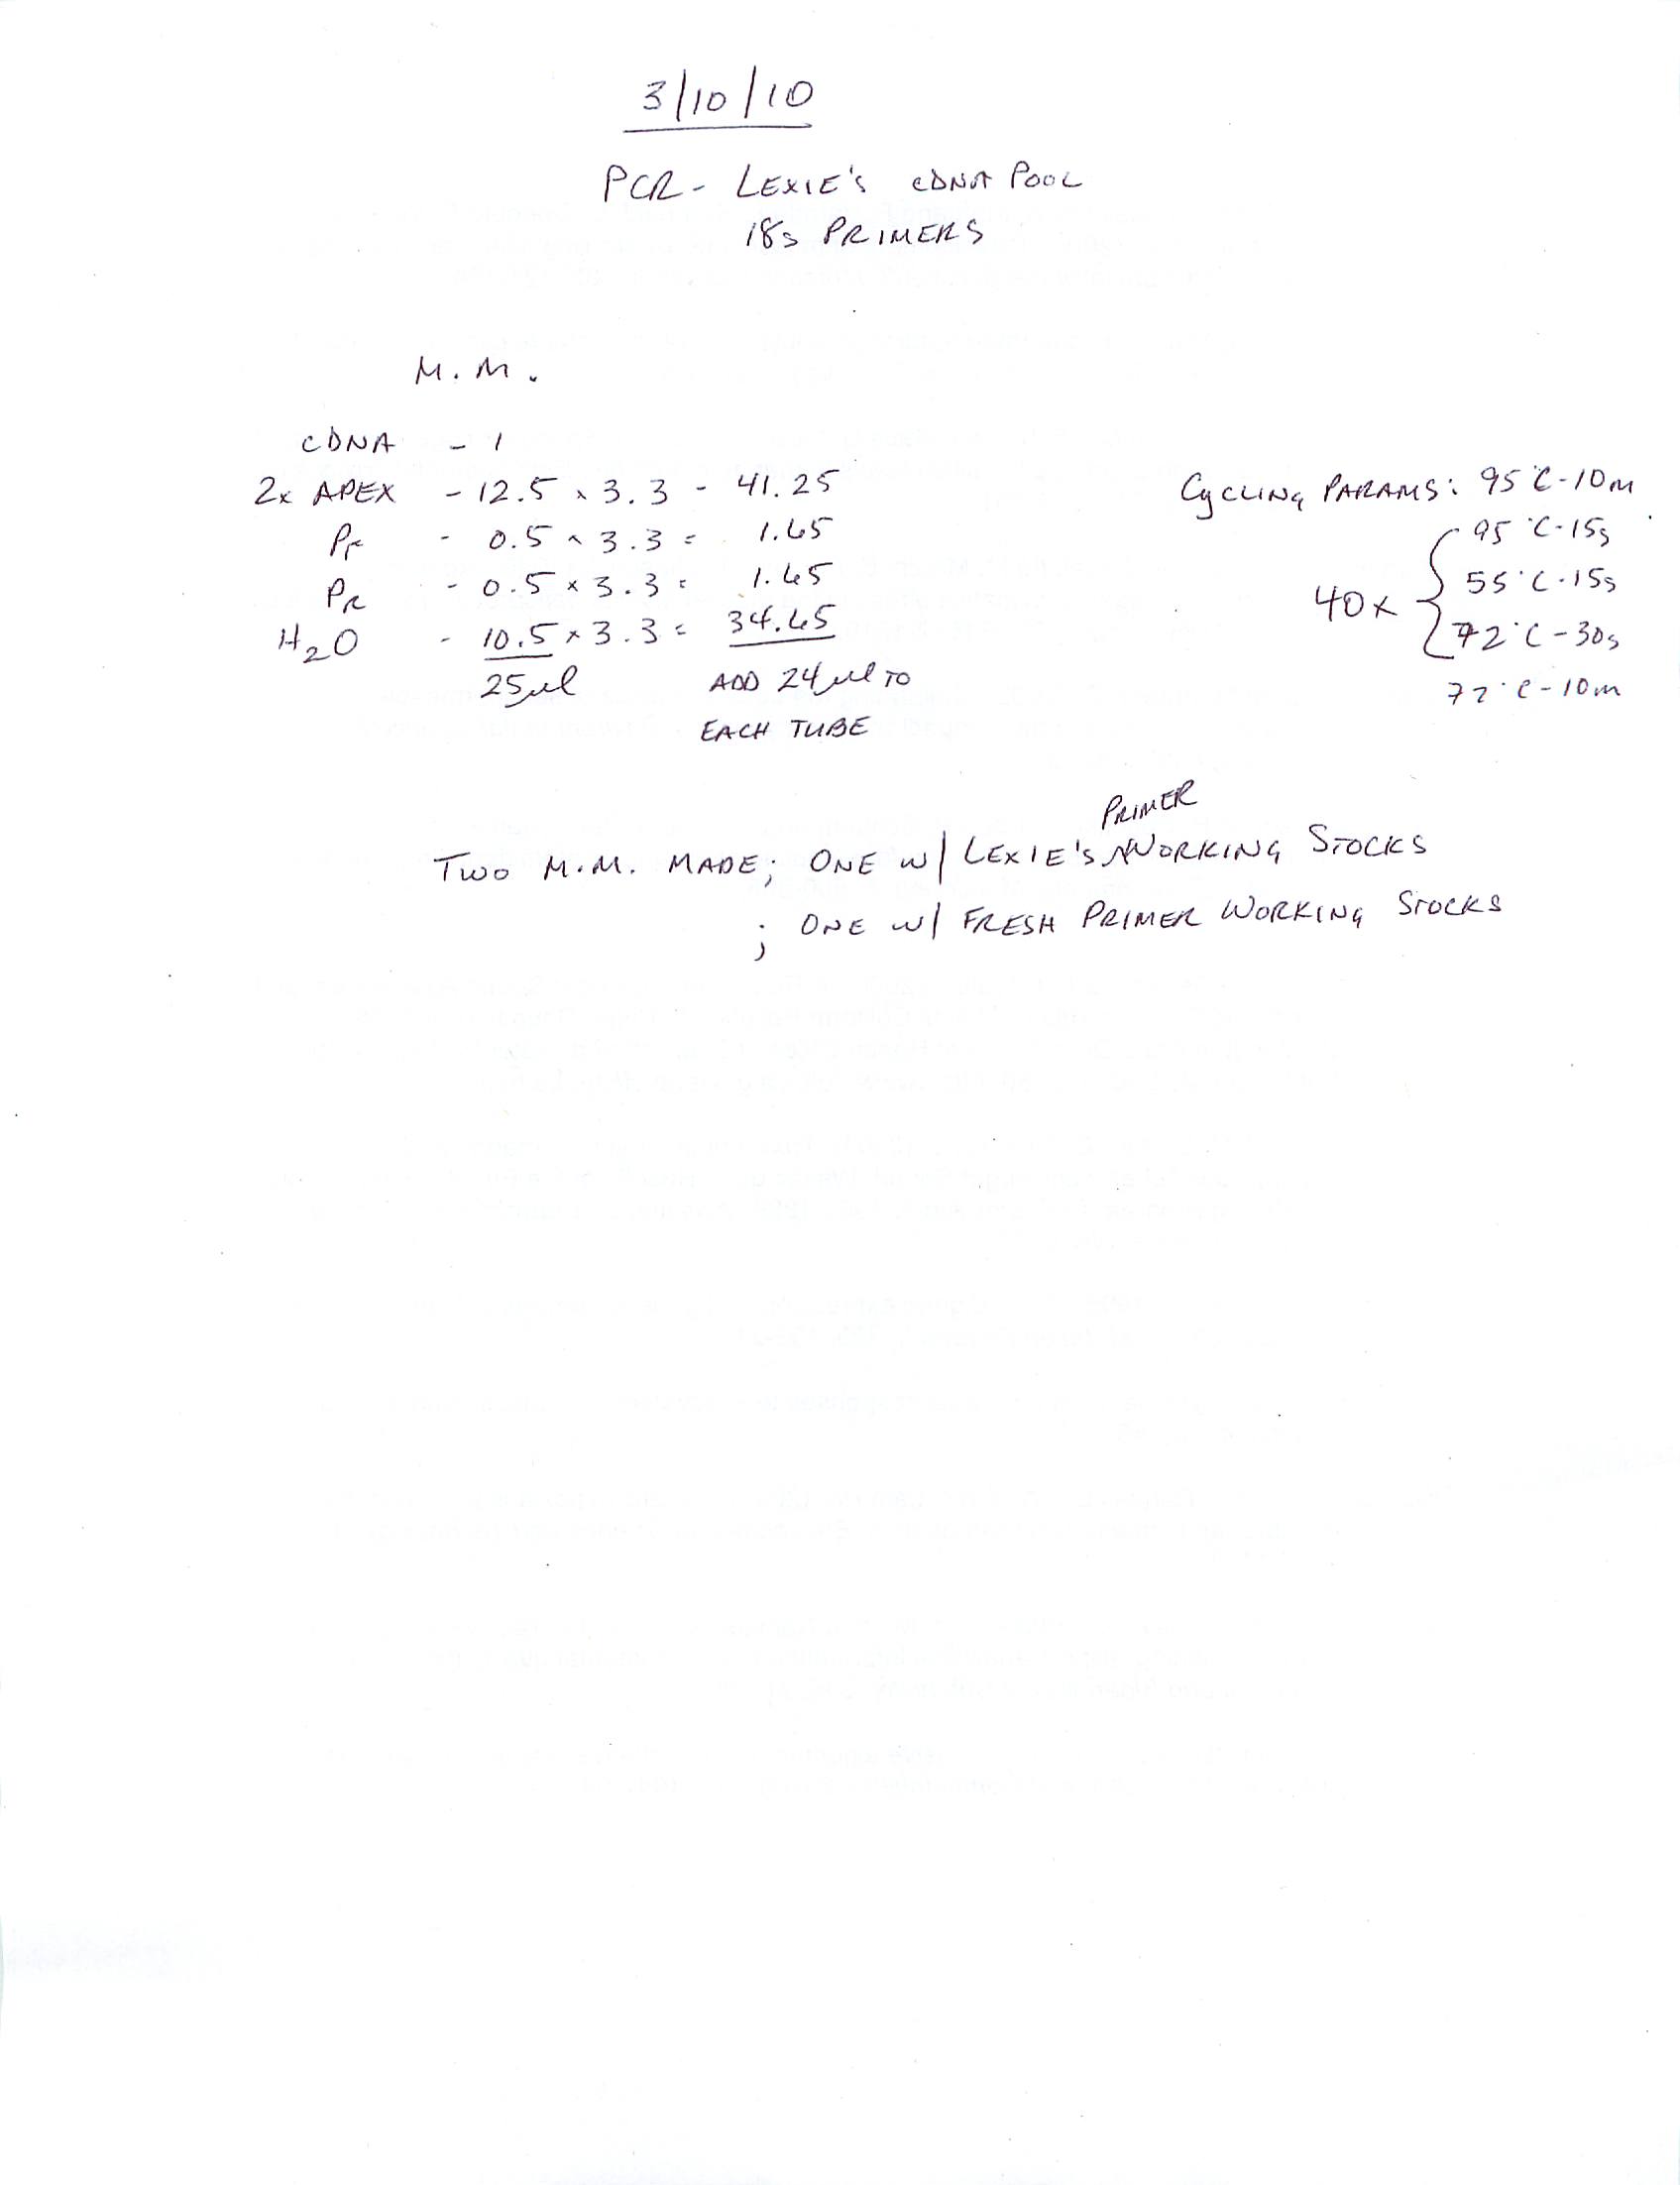 3/10/10
PCR - LEXIE'S cDNA POOL
18s PRIMERS
M.M.
cDNA - 1
2x APEX - 12.5 x 3.3 - 41.25
PF - 0.5 x 3.3 = 1.65
PR - 0.5 x 3.3 = 1.65
H2O - 10.5 x 3.3 = 34.65
25µl ADD 24µl TO
EACH TUBE
CYCLING PARAMS: 95°C-10m
95°C-15s
40x { 55°C-15s
72°C-30s
72°C-10m
PRIMER
TWO M.M. MADE; ONE w/ LEXIE'S WORKING STOCKS
; ONE w/ FRESH PRIMER WORKING STOCKS